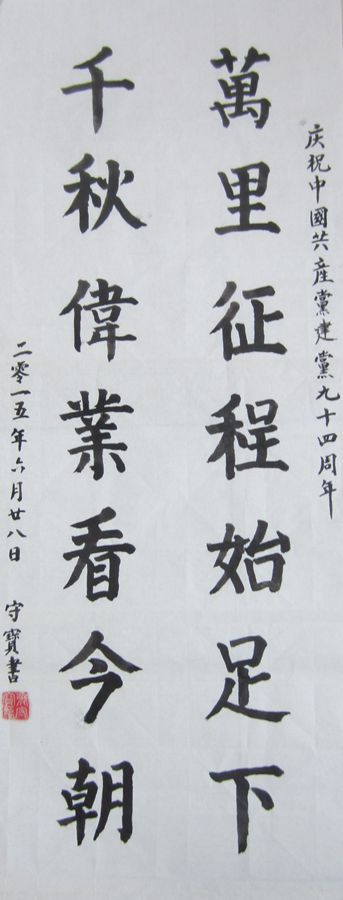 庆祝中國共産黨建黨九十四周年
萬里征程始足下
千秋偉業看今朝
二零一五年六月廿八日
守寶書